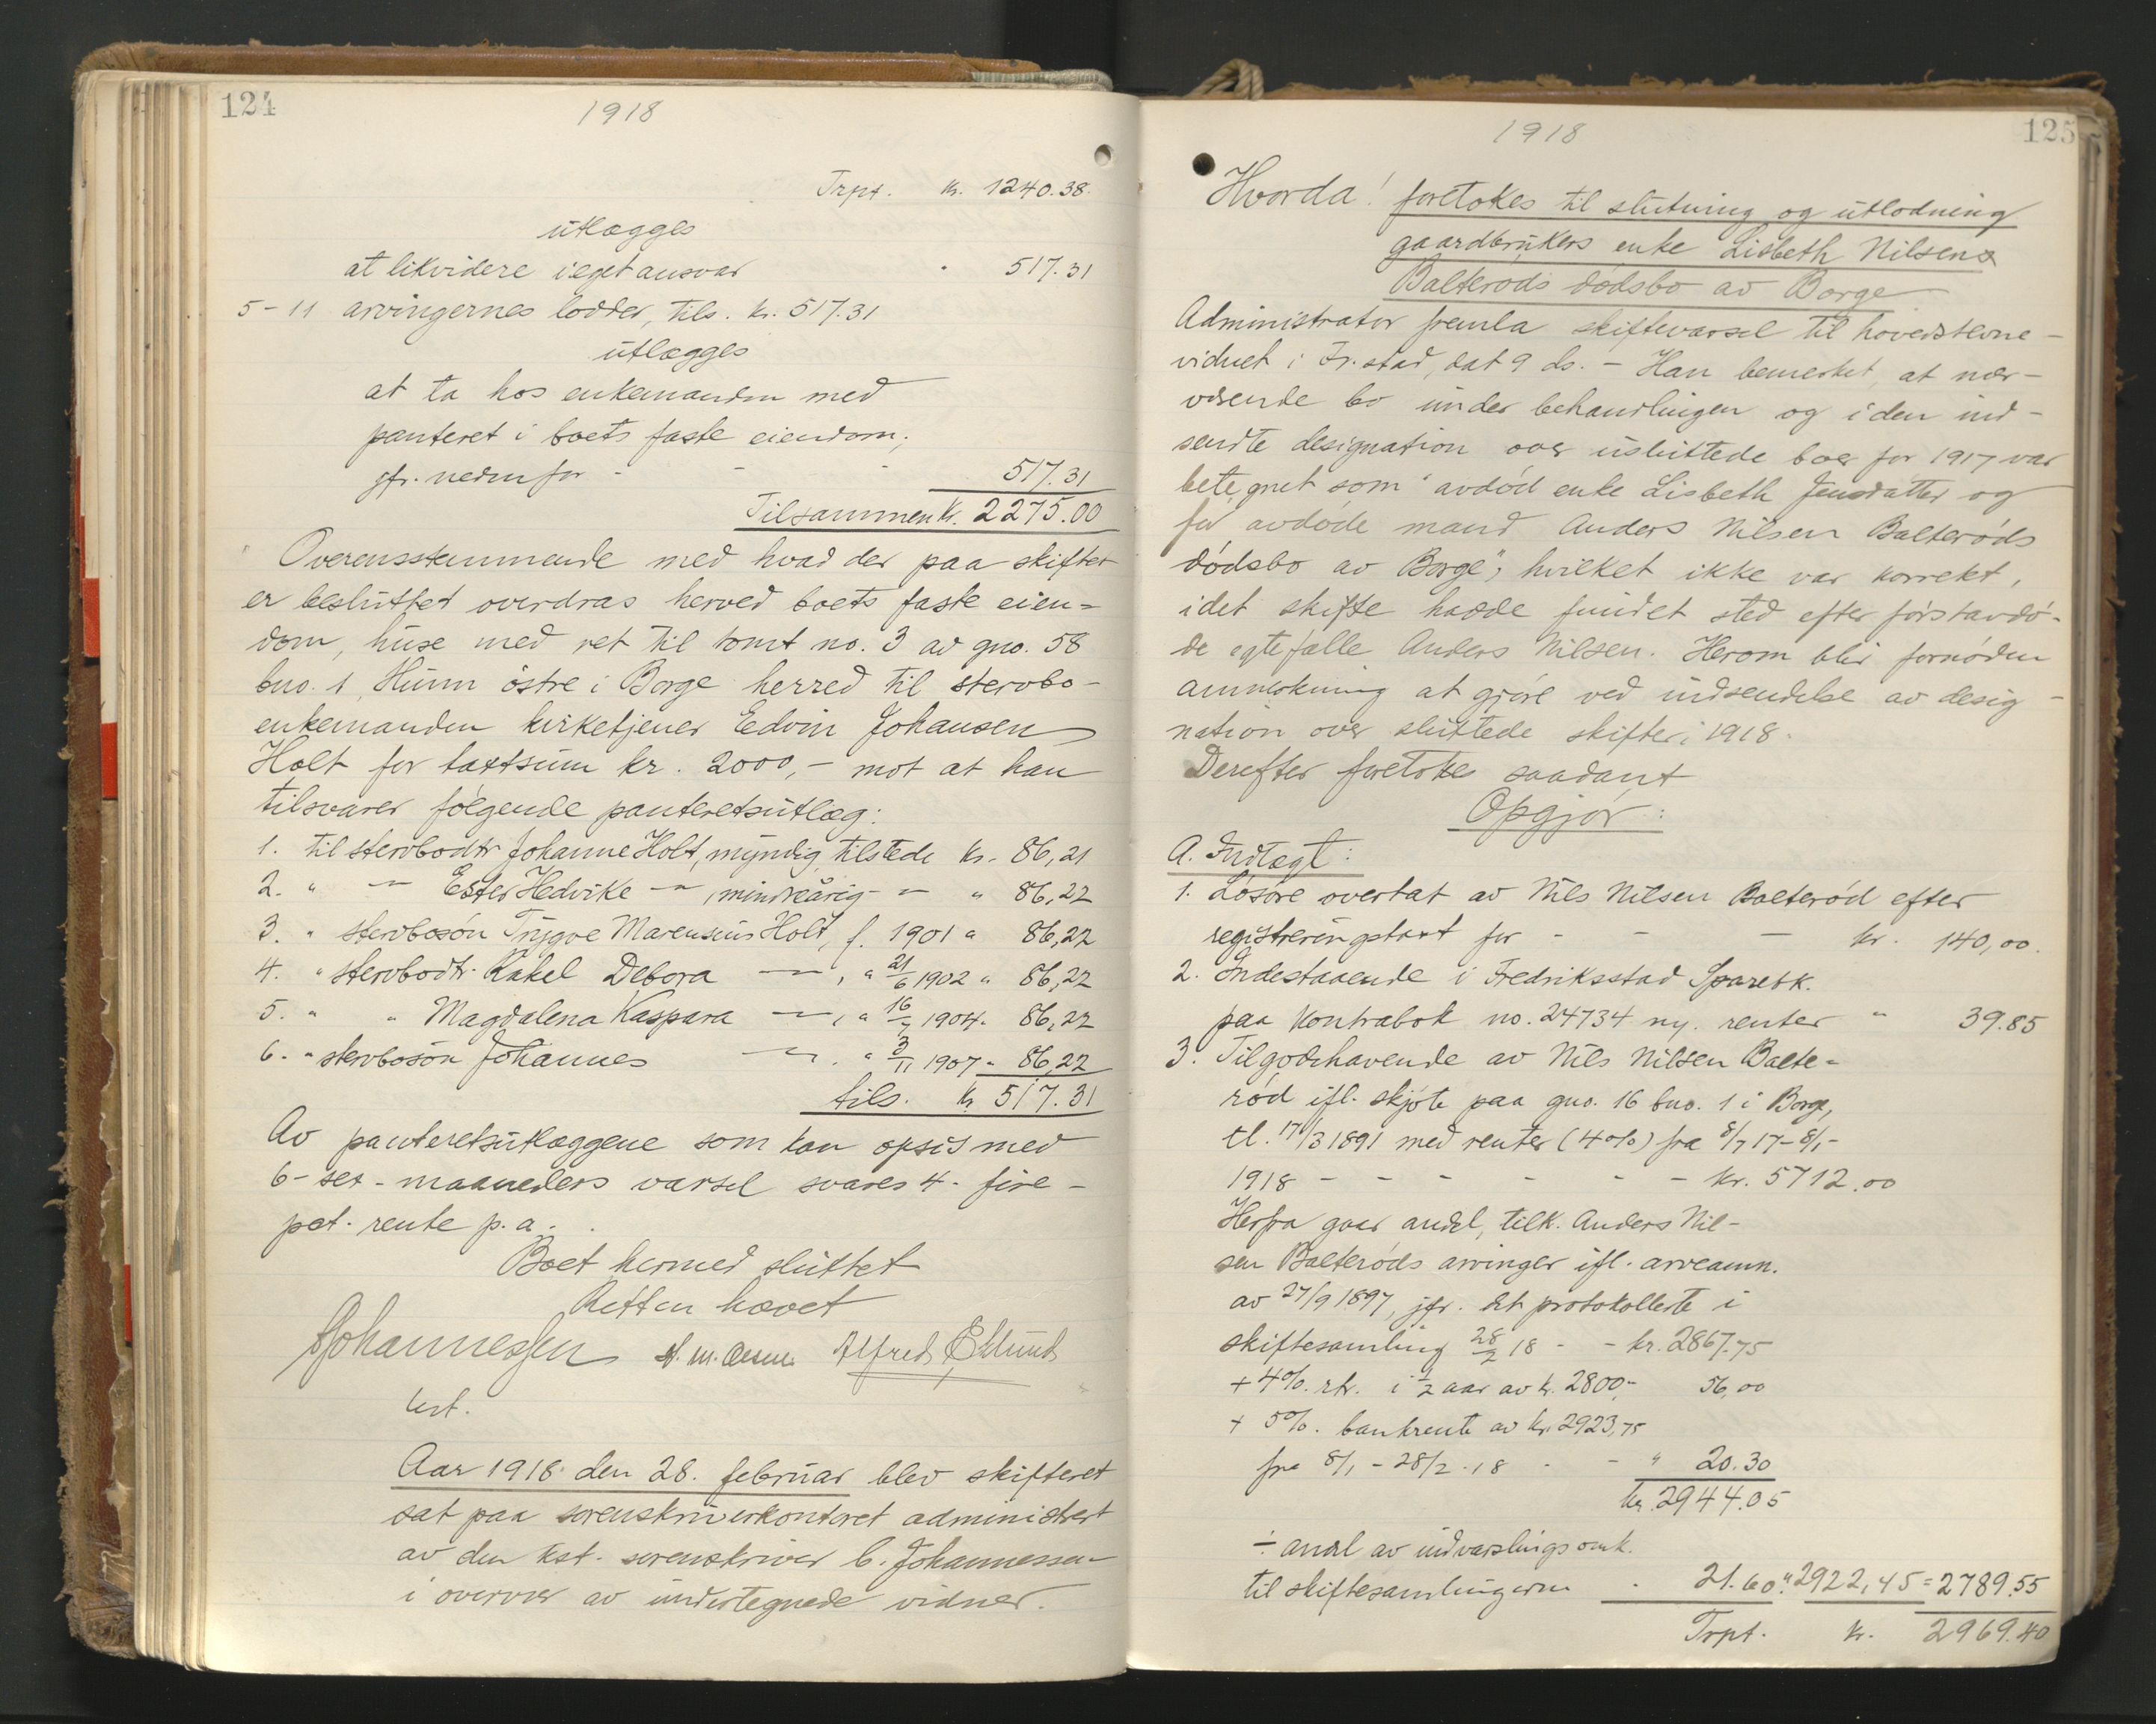 124
1918
Trpt. kr. 1240.38.
utlægges
at likvidere i eget ansvar " 517.31
5-11 arvingernes lodder, tils. kr. 517.31
utlægges
at ta hos enkemanden med
panteret i boets faste eiendom;
jfr. nedenfor - - - 517.31
Tilsammen kr. 2275.00
Overensstemmende med hvad der paa skiftet
er besluttet overdras herved boets faste eien=
dom, huse med ret til tomt no. 3 av gno. 58
bno. 1 Hunn østre i Borge herred til stervbo-
enkemanden kirketjener Edvin Johansen
Holt for taxtsum kr. 2000,- mot at han
tilsvarer følgende panteretsutlæg:
1. til stervbodtr Johanne Holt, myndig, tilstede kr. 86,21
2. " — Ester Hedvike — , mindreårig - — " 86,22
3. " stervbosøn Trygve Marensius Holt, f. 1901 " 86,22
4. " stervbodtr. Rakel Debora — , " 21/6 1902 " 86,22
5. " " Magdalena Kaspara — , " 16/7 1904 " 86,22
6. " stervbosøn Johannes — , " 3/11 1907 " 86,22
tils. kr 517.31
Av panteretsutlæggene som kan opsis med
6-sex-maaneders varsel svares 4-fire-
pct. rente p. a.
Boet hermed sluttet
Retten hævet
Johannessen Alfred Edlund
kst.
Aar 1918 den 28. februar blev skifteret
sat paa sorenskriverkontoret administrert
av den kst. sorenskriver C. Johannessen
i overvær av undertegnede vidner.
125
1918
Hvorda! foretokes til slutning og utlodning
gaardbrukers enke Lisbeth Nilsens
Balterøds dødsbo av Borge
Administrator fremla skiftevarsel til hovedstevne-
vidnet i Fr.stad, dat 9 ds. - Han bemerket, at nær-
værende bo under behandlingen og i den ind-
sendte designation over usluttede boer for 1917 var
betegnet som "avdød enke Lisbeth Jensdatter og
før avdøde mand Anders Nilsen Balterøds
dødsbo av Borge"; hvilket ikke var korrekt,
idet skifte hadde fundet sted efter førstavdø-
de egtefælle Anders Nilsen. Herom blir fornøden
anmerkning at gjøre ved indsendelse av desig-
nation over sluttede skifter i 1918.
Derefter foretokes saadant
Opgjør:
A. Indtægt:
1. Løsøre overtat av Nils Nilsen Balterød efter
registreringstaxt for - - - kr. 140,00.
2. Indestaaende i Fredriksstad Sparebk.
paa Kontrabok no. 24734 ny. renter " 39.85
3. Tilgodehavende av Nils Nilsen Balte=
rød ifl. skjøte paa gno. 16 bno. 1 i Borge,
tl. 17/3 1891 med renter (4%) fra 8/7 17-8/1-
1918 - - - - - - kr. 5712.00
Herfra gaar andel, tilk. Anders Nil-
sen Balterøds arvinger ifl. arveanm.
av 27/9 1897, jfr. det protokollerte i
skiftesamling 28/2 18 - - kr. 2867.75
+ 4% rtr. i 1/2 aar av kr. 2800,- 56,00
+ 5% bankrente av kr. 2923,75
fra 8/1 - 28/2 - 18 - - " 20.30
kr. 2944.05
÷ andel av indvarslings omk.
til skiftesamlingerne - 21.60 " 2922,45 = 2789.55
Trpt. kr. 2969.40